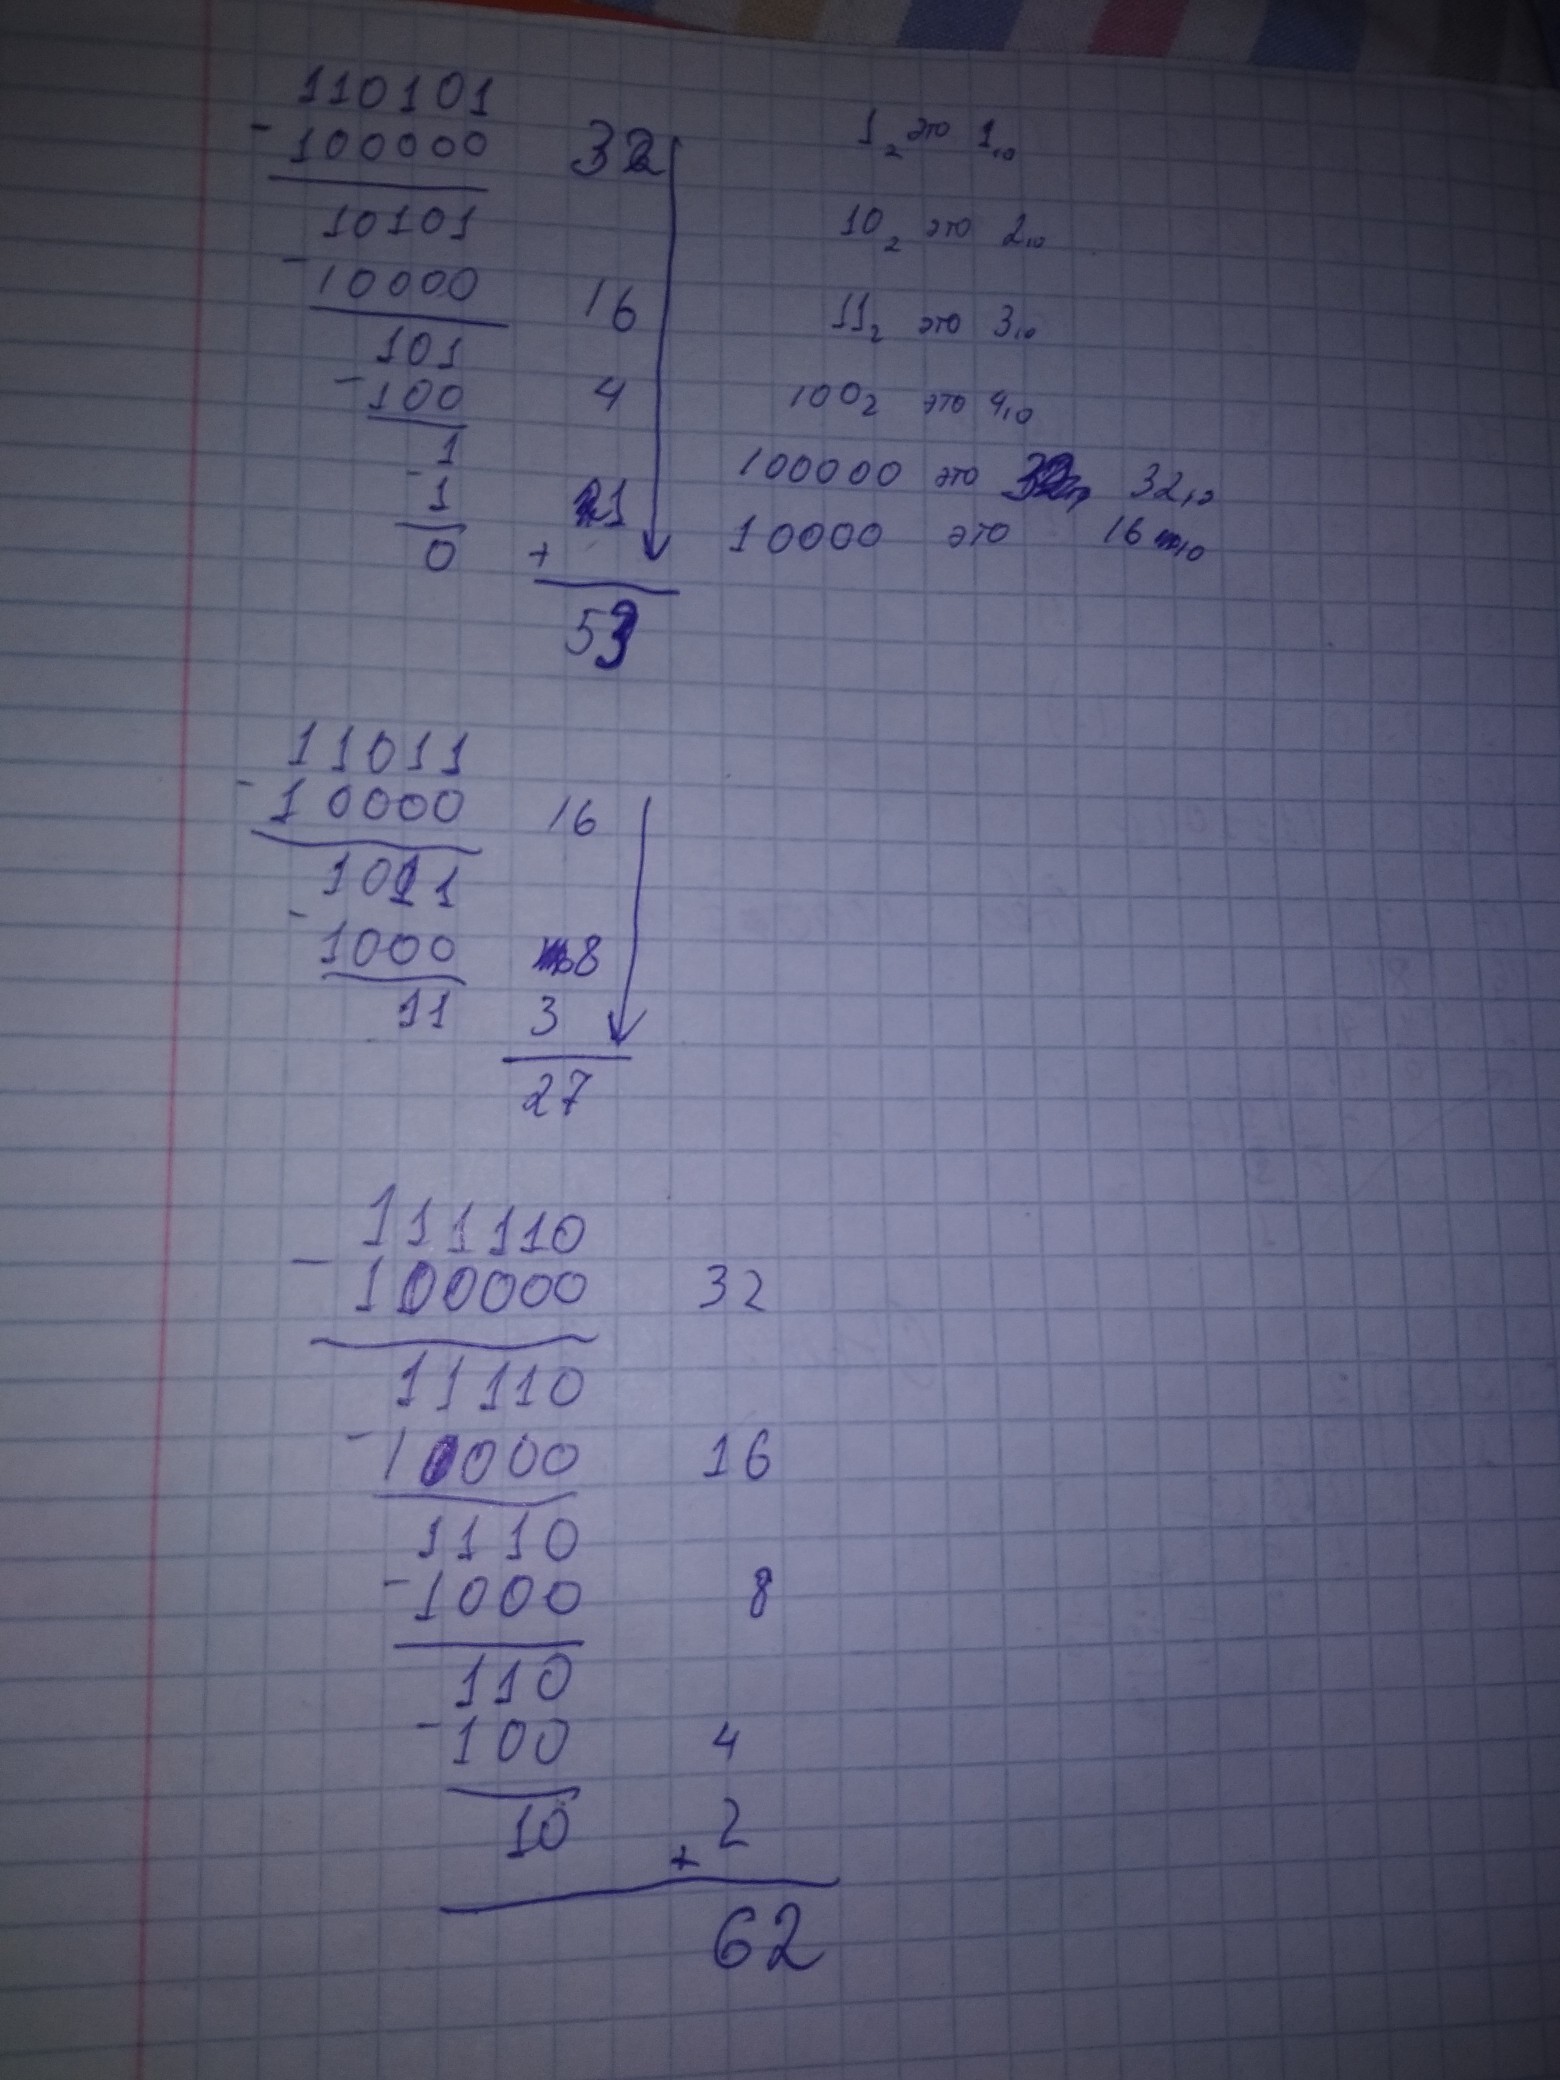 110101
- 100000 32
10101
- 10000 16
101
- 100 4
1
- 1 1
0 +
53
1₂ это 1₁₀
10₂ это 2₁₀
11₂ это 3₁₀
100₂ это 4₁₀
100000 это 32₁₀
10000 это 16₁₀
11011
- 10000 16
1011
- 1000 8
11 3
27
111110
- 100000 32
11110
- 10000 16
1110
- 1000 8
110
- 100 4
10 + 2
62